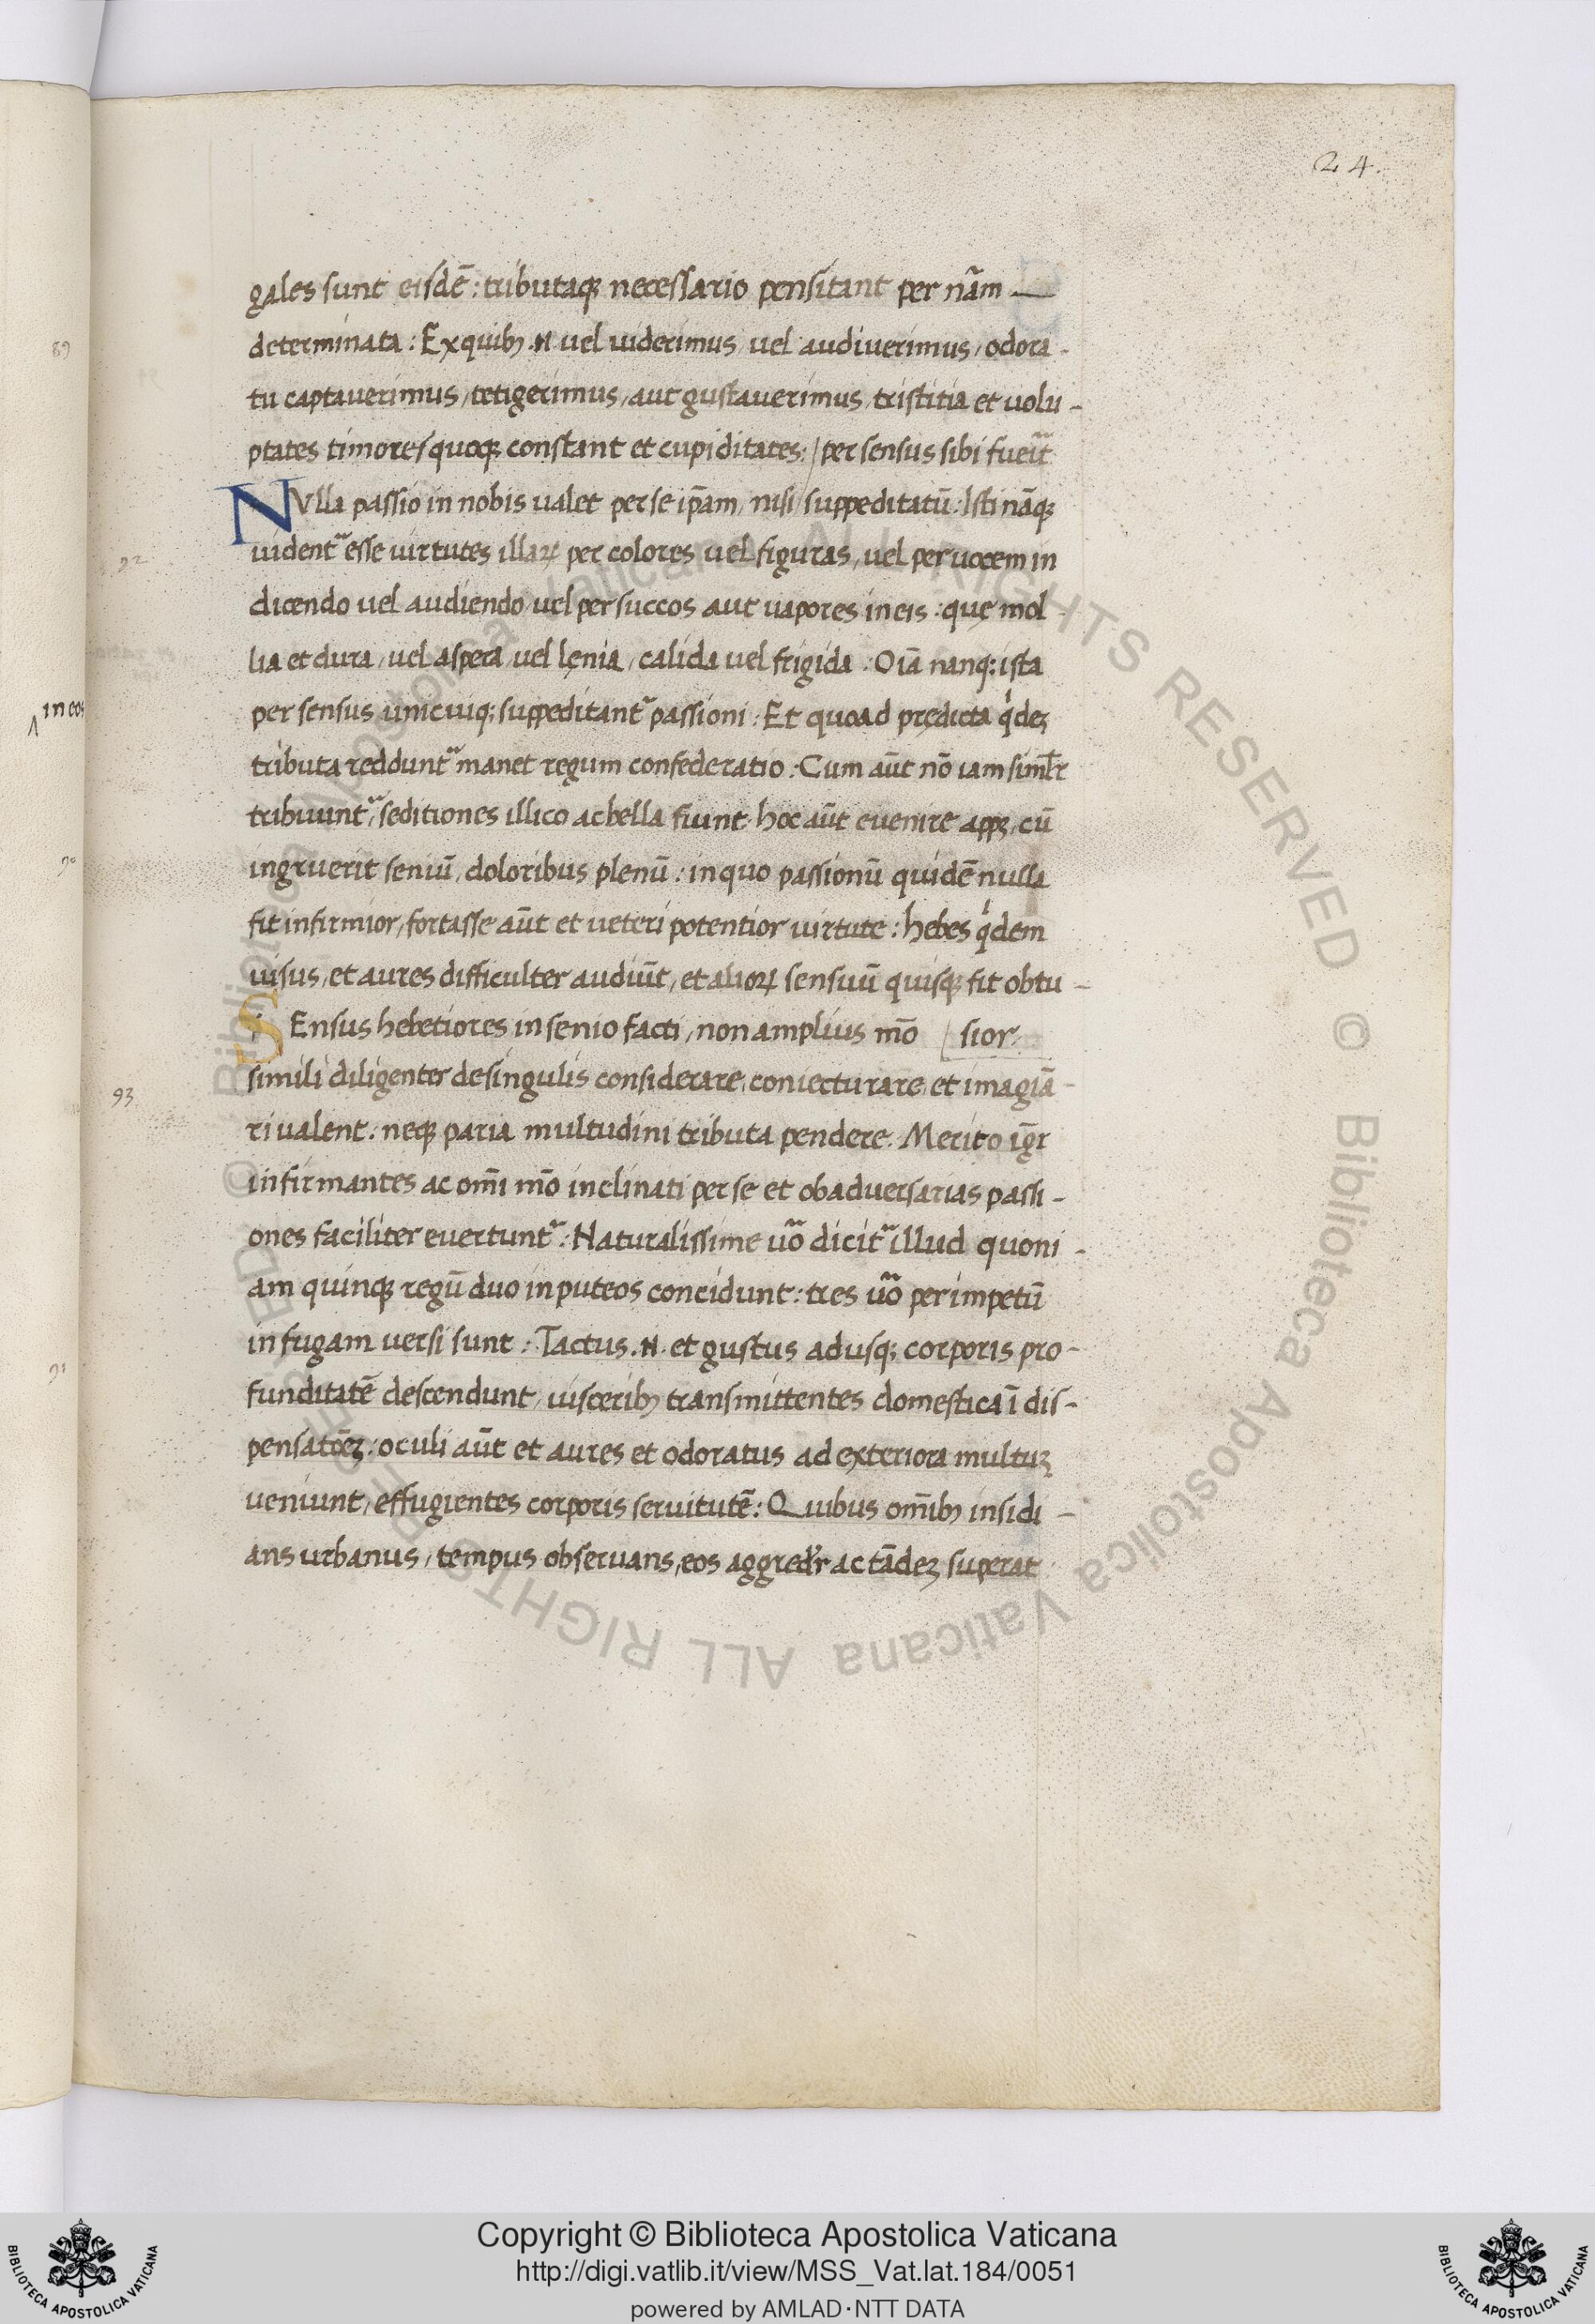 24.
gales sunt eisdē : tributaqꝫ necessario pensitant per nām —
determinata : Ex quibꝫ .n. uel uiderimus, uel audiuerimus, odora-
tu captauerimus, tetigerimus, aut gustauerimus, tristitia et uolu-
ptates timores quoqꝫ constant et cupiditates: / per sensus sibi fuerīt
NVlla passio in nobis ualet per se ip̄am, nisi / suppeditatū : Isti nāqꝫ
uident᷑ esse uirtutes illaꝝ per colores uel figuras, uel per uocem in
dicendo uel audiendo, uel per succos aut uapores in eis : quę mol-
lia et dura, uel aspera, uel lęnia, calida uel frigida : Oīa nanq; ista
per sensus unicuiq; suppeditant᷑ passioni : Et quoad prędicta qͥdeꝫ
tributa reddunt᷑ manet regum confederatio : Cum aūt nō iam simłr
tribuunt᷑, seditiones illico ac bella fiunt. hoc aūt euenire appꝫ, cū
ingruerit seniū, doloribus plenū : in quo passionū quidē nulla
fit infirmior, fortasse aūt et ueteri potentior uirtute : hebes qͥdem
uisus, et aures difficulter audiūt, et alioꝝ sensuū quisqꝫ fit obtu-
SEnsus hebetiores in senio facti, non amplius mō [ sior.
simili diligenter de singulis considerare, coniecturare, et imagiā-
ri ualent : neqꝫ paria multudini tributa pendere. Merito iḡr
infirmantes ac om̄i mō inclinati per se et ob aduersarias passi-
ones faciliter euertunt᷑ : Naturalissime uo᷑ dicit᷑ illud quoni-
am quinqꝫ regū duo in puteos concidunt : tres uo᷑ per impetū
in fugam uersi sunt : Tactus .n. et gustus adusq; corporis pro-
funditatē descendunt, uisceribꝫ transmittentes domestica ī dis-
pensatōeꝫ : oculi aūt et aures et odoratus ad exteriora multuꝫ
ueniunt, effugientes corporis seruitutē : Quibus om̄ibꝫ insidi-
ans urbanus, tempus obseruans, eos aggredit᷑r ac tādeꝫ superat
89
92
in eos
90
93
91
© Biblioteca Apostolica Vaticana ALL RIGHTS RESERVED © Biblioteca Apostolica Vaticana ALL RIGHTS RESERVED
Copyright © Biblioteca Apostolica Vaticana
http://digi.vatlib.it/view/MSS_Vat.lat.184/0051
powered by AMLAD·NTT DATA
BIBLIOTECA APOSTOLICA VATICANA
BIBLIOTECA APOSTOLICA VATICANA